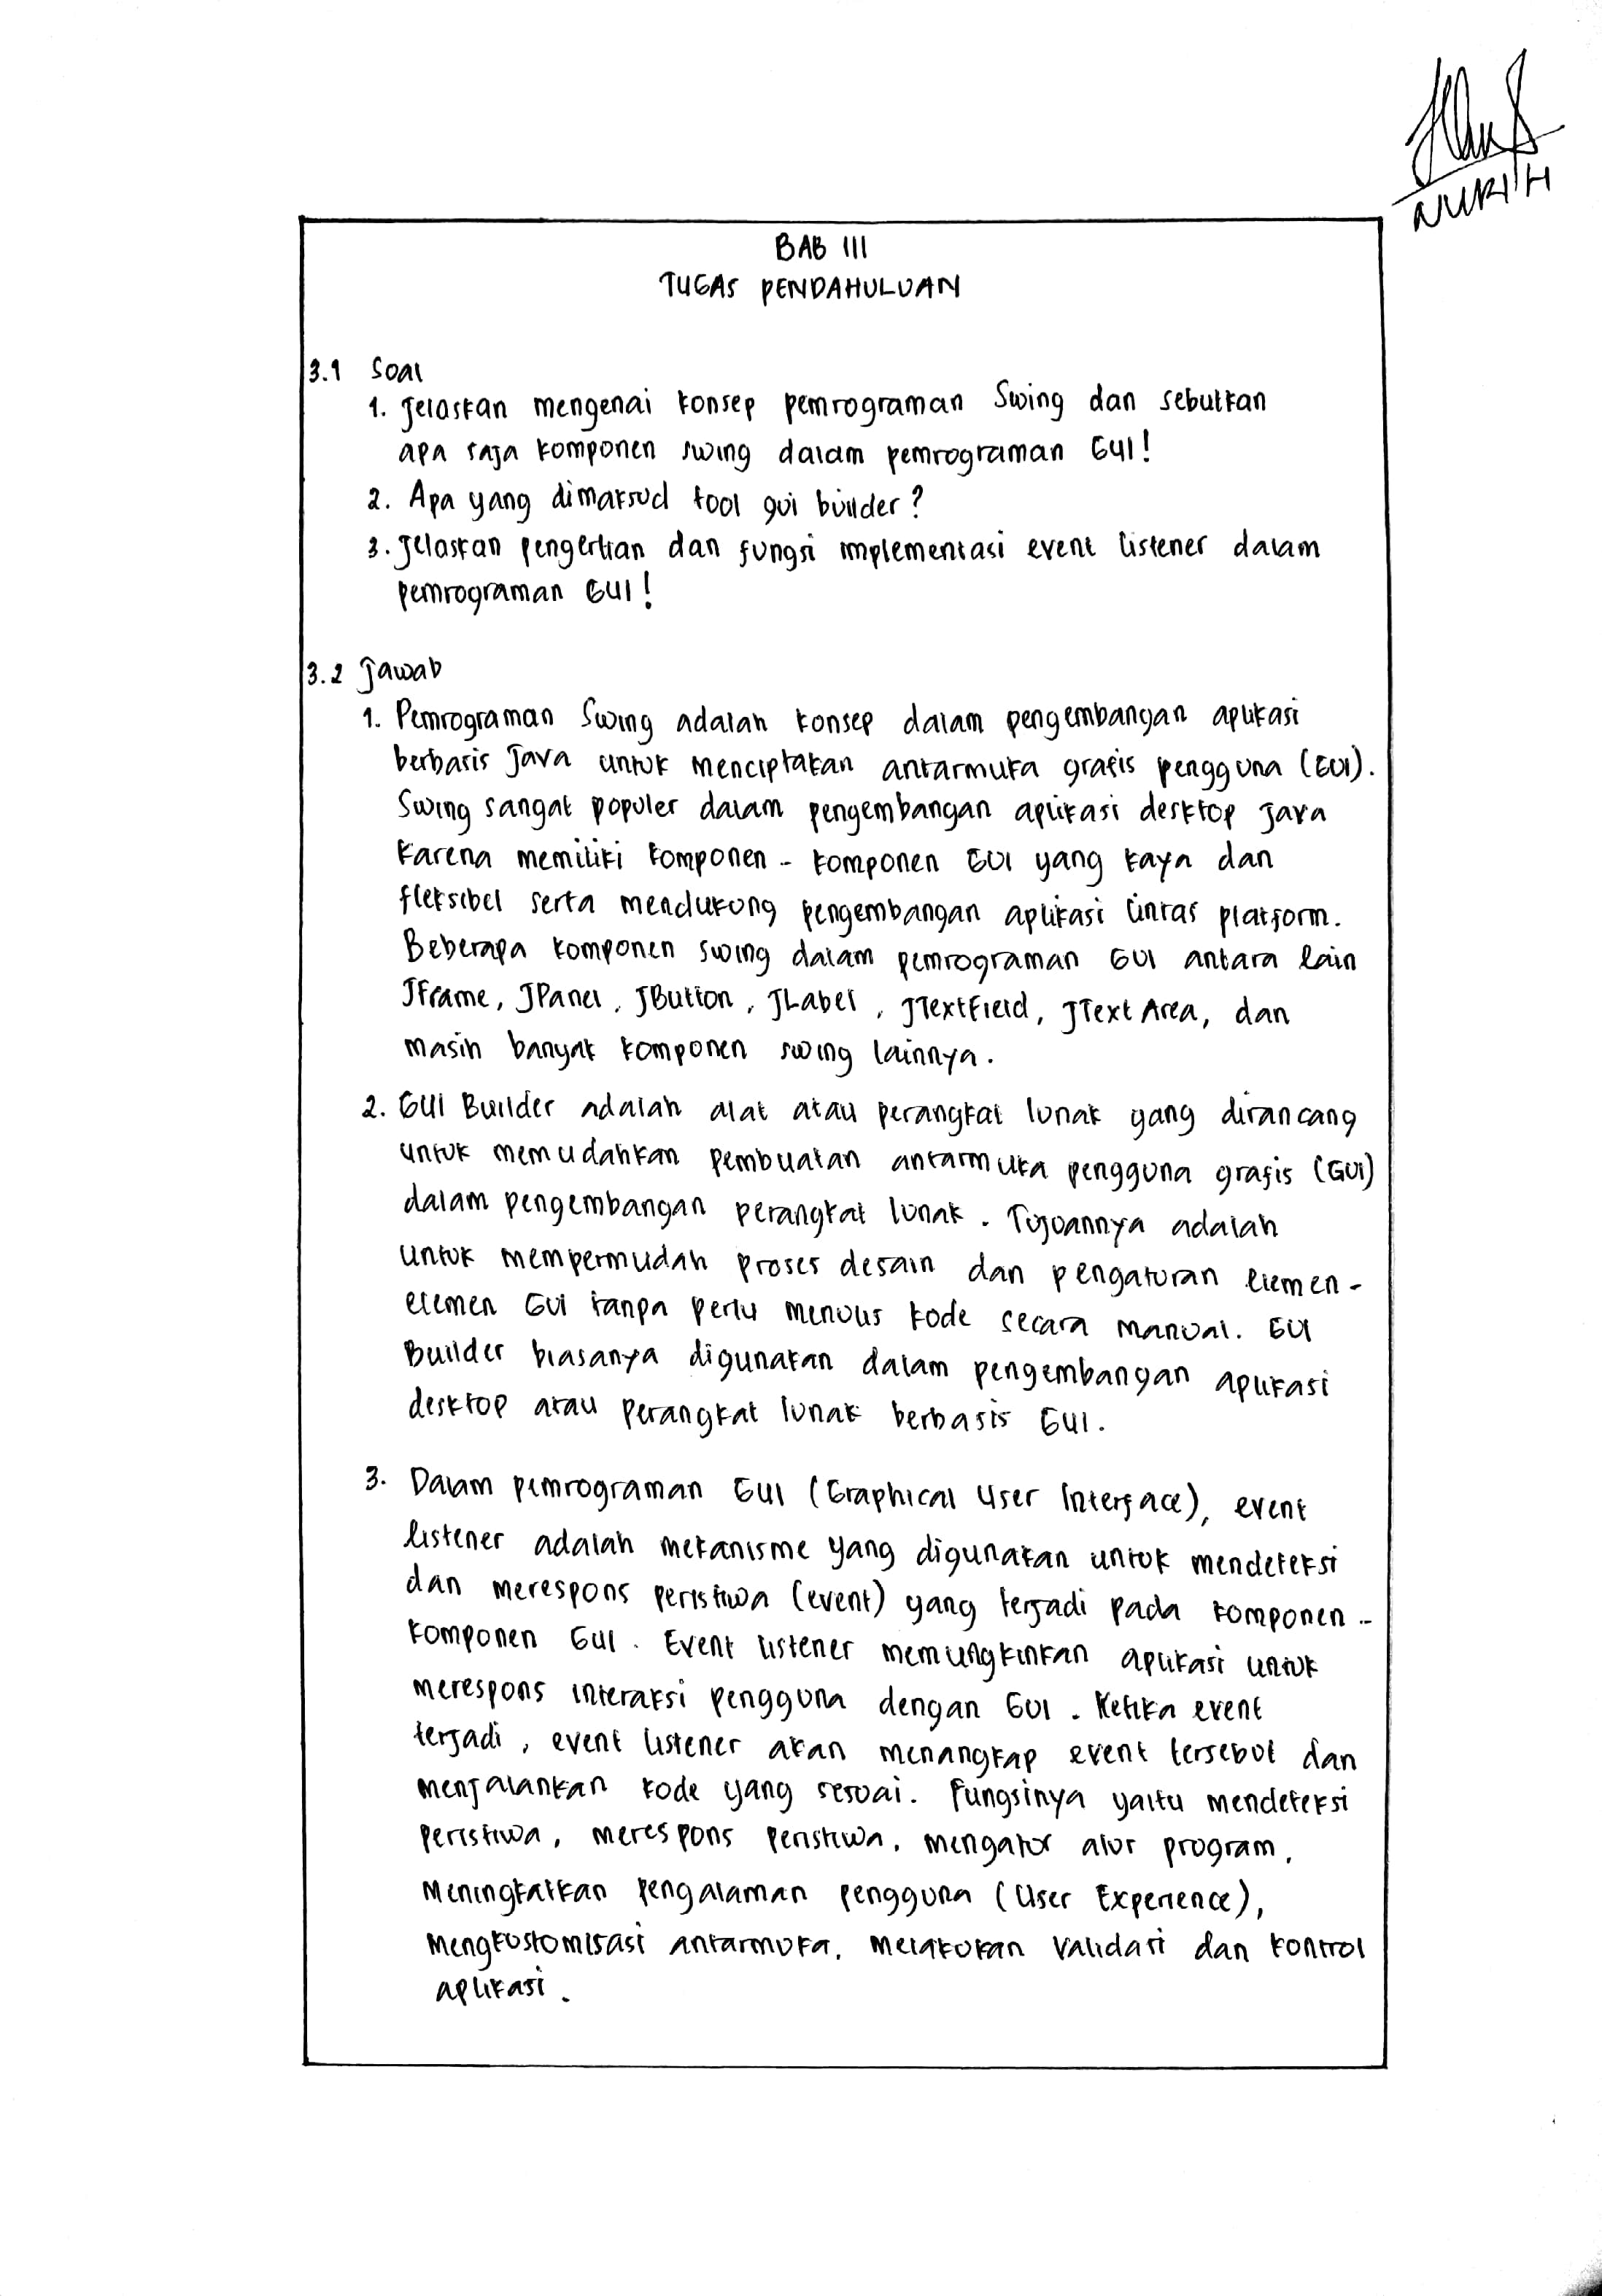 NURIH
BAB III
TUGAS PENDAHULUAN
3.1 Soal
1. Jelaskan mengenai konsep pemrograman Swing dan sebutkan
apa saja komponen swing dalam pemrograman GUI!
2. Apa yang dimaksud tool gui builder?
3. Jelaskan pengertian dan fungsi implementasi event listener dalam
pemrograman GUI!
3.2 Jawab
1. Pemrograman Swing adalah konsep dalam pengembangan aplikasi
berbasis Java untuk menciptakan antarmuka grafis pengguna (GUI).
Swing sangat populer dalam pengembangan aplikasi desktop Java
karena memiliki komponen - komponen GUI yang kaya dan
fleksibel serta mendukung pengembangan aplikasi lintas platform.
Beberapa komponen swing dalam pemrograman GUI antara lain
JFrame, JPanel, JButton, JLabel, JTextField, JText Area, dan
masih banyak komponen swing lainnya.
2. GUI Builder adalah alat atau perangkat lunak yang dirancang
untuk memudahkan pembuatan antarmuka pengguna grafis (GUI)
dalam pengembangan perangkat lunak. Tujuannya adalah
untuk mempermudah proses desain dan pengaturan elemen-
elemen GUI tanpa perlu menulis kode secara manual. GUI
Builder biasanya digunakan dalam pengembangan aplikasi
desktop atau perangkat lunak berbasis GUI.
3. Dalam pemrograman GUI (Graphical User Interface), event
listener adalah mekanisme yang digunakan untuk mendeteksi
dan merespons peristiwa (event) yang terjadi pada komponen -
komponen GUI. Event listener memungkinkan aplikasi untuk
merespons interaksi pengguna dengan GUI. Ketika event
terjadi, event listener akan menangkap event tersebut dan
menjalankan kode yang sesuai. Fungsinya yaitu mendeteksi
peristiwa, merespons peristiwa, mengatur alur program,
Meningkatkan pengalaman pengguna (User Experience),
Mengkustomisasi antarmuka, melakukan validasi dan kontrol
aplikasi.